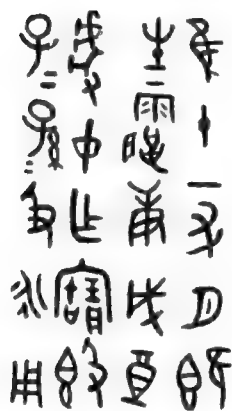 隹十一又月既
生霸庚戌奠
虢中乍寶𣪘
子=孫=及永用